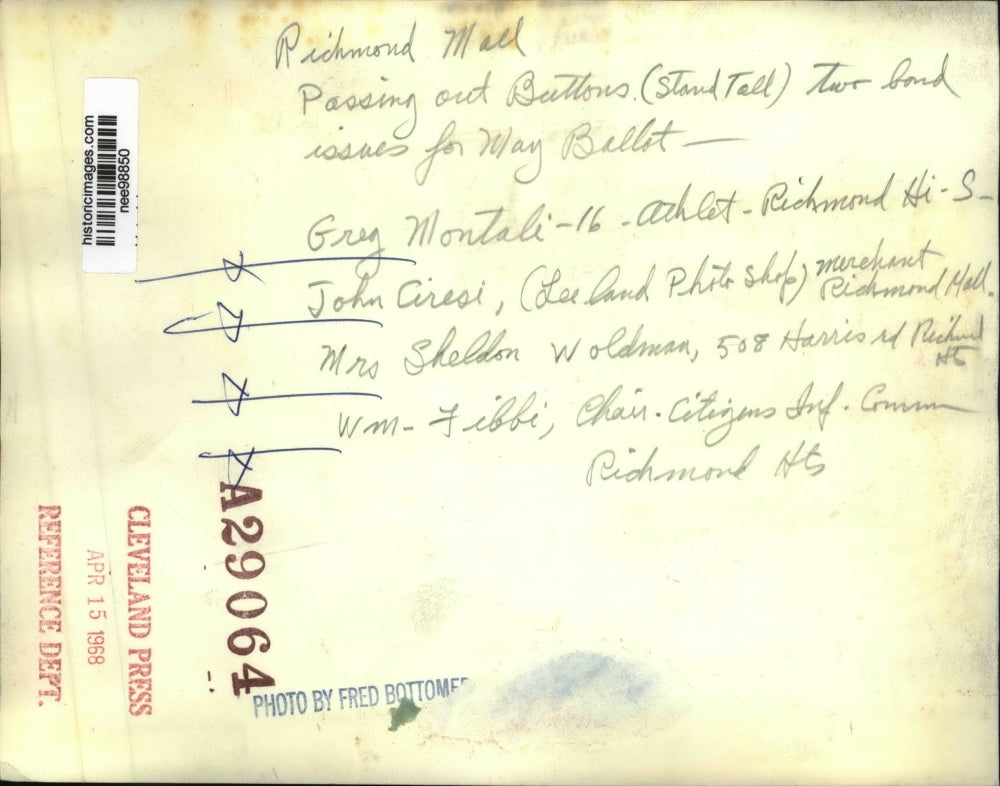 Richmond Mall
Passing out Buttons (Stand Tall) two bond
issues for May Ballot —
Greg Montali - 16 - Athlet - Richmond Hi - S -
John Ciresi, (Leeland Photo Shop) merchant
Richmond Mall.
Mrs Sheldon Woldman, 508 Harris rd Richmond
Hts
Wm - Fibbi, Chair. Citizens Inf. Comm
Richmond Hts
historicimages.com
nee98850
A29064
CLEVELAND PRESS
APR 15 1968
REFERENCE DEPT.
PHOTO BY FRED